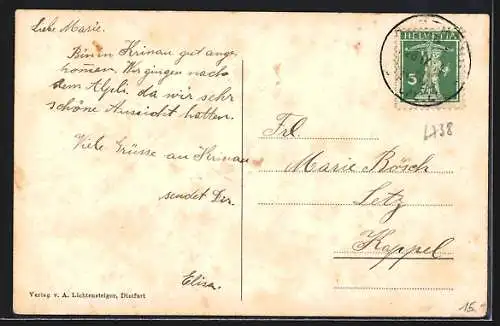 Liebe Marie.
Bin in Krinau gut ange
kommen. Wir gingen nach
dem Älpli. da wir sehr
schöne Aussicht hatten.
Viele Grüsse an Krinau
sendet Dir
Elisa.
Verlag v. A. Lichtensteiger, Dietfurt
HELVETIA
5
L738
Frl.
Marie Rösch
Letz
Kappel
15.-